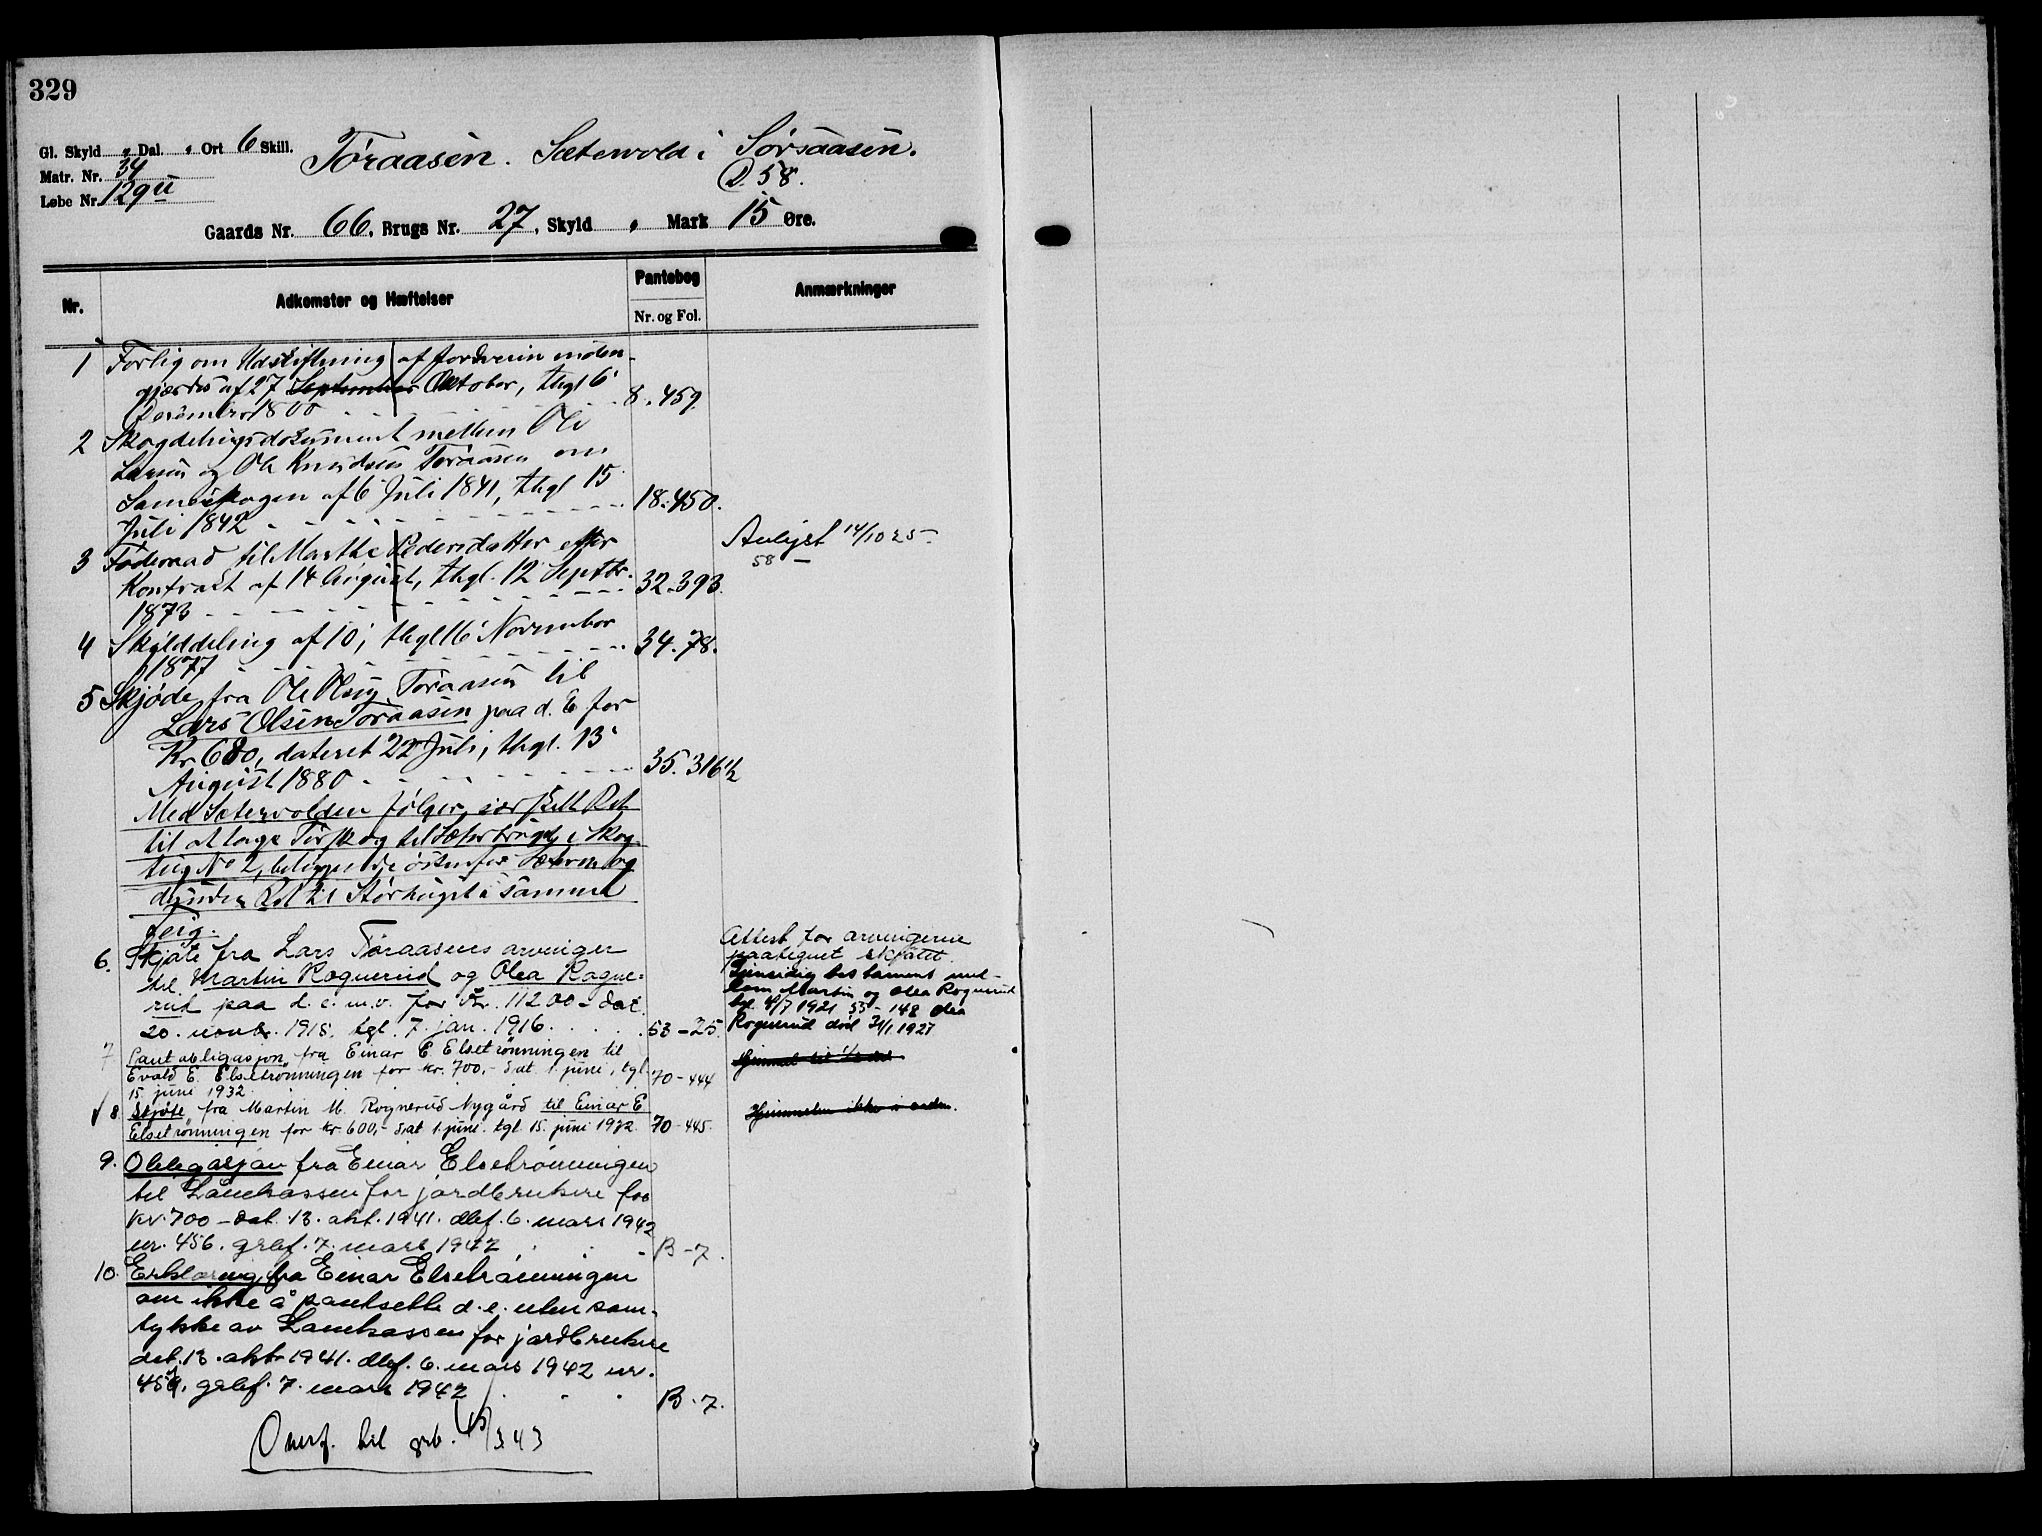 329
Gl. Skyld " Dal. " Ort 6 Skill. Toraasen. Sætervold i Sørsaasen.
Matr. Nr. 34
D. 58.
Løbe Nr. 129 u
Gaards Nr. 66, Brugs Nr. 27, Skyld " Mark 15 Øre.
Nr. Adkomster og Hæftelser Pantebog Anmærkninger
Nr. og Fol.
1 Forlig om Udskiftning af Jordveien inden-
gjærdes af 27 September Oktober, thgl 6
December 1800 8. 459.
2 Skogdelingsdokument mellem Ole
Larsen og Ole Knudsen Toraasen om
Sameskogen af 6 Juli 1841, thgl 15
Juli 1842 18. 450.
3 Føderaad til Marthe Pedersdatter efter Avlyst 14/10 25
Kontrakt af 14 August, thgl. 12 Septbr. 32-393. 58
1873
4 Skylddeling af 10, thgl 16 November 34. 78.
1877
5 Skjøde fra Ole Olsen Toraasen til
Lars Olsen Toraasen paa d. E for
Kr 600, dateret 22 Juli, thgl. 13
August 1880 35. 316 1/2
Med Sætervolden følger særskilt Ret
til at tage Tørskog til Sæterbrug i Skog-
teig No 2, beliggende østenfor Sæteren og
desuden Ret til Størhugst i samme
Teig.
6. Skjøte fra Lars Toraasens arvinger
til Martin Rognerud og Olea Rogne-
rud paa d. e. m. v. for kr. 11200 - dat.
20. novbr. 1915. tgl. 7. jan. 1916. 53-25.
Attest for arvingerne
paategnet skjøtet.
Gjensidig testament mel-
lem Martin og Olea Rognerud
tgl. 4/7 1921 55-148 Olea
Rognerud død 31/1 1927
7 Pantobligasjon fra Einar E Elsetrønningen til Hjemmel til 1/2 del
Evald E. Elsetrønningen for kr. 700,- dat. 1. juni, tgl. 70-444
15. juni 1932
8. Skjøte fra Martin M. Rognerud Nygård til Einar E Hjemmelen ikke i orden.
Elsetrønningen for kr 600,- dat 1. juni. tgl. 15. juni 1932. 70-445.
9. Obligasjon fra Einar Elsetrønningen
til Lånekassen for jordbrukere for
kr. 700 - dat. 13. okt. 1941. dbf. 6. mars 1942
nr. 456. grbf. 7. mars 1942 B-7.
10. Erklæring fra Einar Elsetrønningen
om ikke å pantsette d. e. uten sam-
tykke av Lånekassen for jordbrukere
dat. 13. okt. 1941. dbf. 6. mars 1942 nr.
457. grbf. 7. mars 1942 B-7.
Overf. til grb. 15/3 43